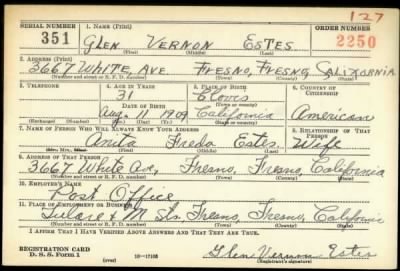 127
SERIAL NUMBER 1. NAME (Print) ORDER NUMBER
351 GLEN VERNON ESTES 2250
(First) (Middle) (Last)
2. ADDRESS (Print)
3667 WHITE AVE. FRESNO, FRESNO, CALIFORNIA
(Number and street or R. F. D. number) (Town) (County) (State)
3. TELEPHONE 4. AGE IN YEARS 5. PLACE OF BIRTH 6. COUNTRY OF CITIZENSHIP
31 Clovis
DATE OF BIRTH (Town or county)
Aug. 11 1909 California American
(Exchange) (Number) (Mo.) (Day) (Yr.) (State or country)
7. NAME OF PERSON WHO WILL ALWAYS KNOW YOUR ADDRESS 8. RELATIONSHIP OF THAT PERSON
Anita Freda Estes Wife
(Mr., Mrs., Miss) (First) (Middle) (Last)
9. ADDRESS OF THAT PERSON
3667 White Ave, Fresno, Fresno, California
(Number and street or R. F. D. number) (Town) (County) (State)
10. EMPLOYER'S NAME
Post Office
11. PLACE OF EMPLOYMENT OR BUSINESS
Tulare & M Sts. Fresno, Fresno, California
(Number and street or R. F. D. number) (Town) (County) (State)
I AFFIRM THAT I HAVE VERIFIED ABOVE ANSWERS AND THAT THEY ARE TRUE.
REGISTRATION CARD
D. S. S. Form 1 (over) 16—17105 Glenn Vernon Estes
(Registrant's signature)